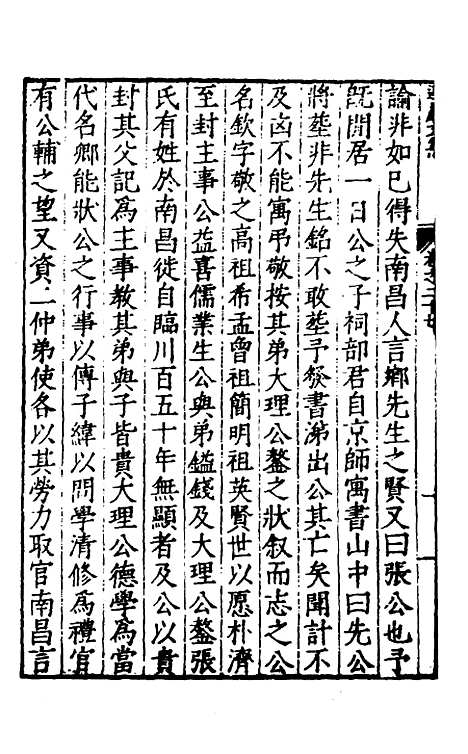 論非如已得失南昌人言鄉先生之賢又曰張公也予
旣閒居一日公之子祠部君自京師寓書山中曰先公
將塟非先生銘不敢塟予發書涕出公其亡矣聞訃不
及㐫不能寓弔敬按其弟大理公鏊之狀叙而志之公
名欽字敬之高祖希孟曾祖簡明祖英賢世以愿朴濟
至封主事公益喜儒業生公與弟鎰錢及大理公鏊張
氏有姓於南昌徙自臨川百五十年無顯者及公以貴
封其父記爲主事教其弟與子皆貴大理公德學爲當
代名卿能狀公之行事以傳子緯以問學清修爲禮官
有公輔之望又資二仲弟使各以其勞力取官南昌言